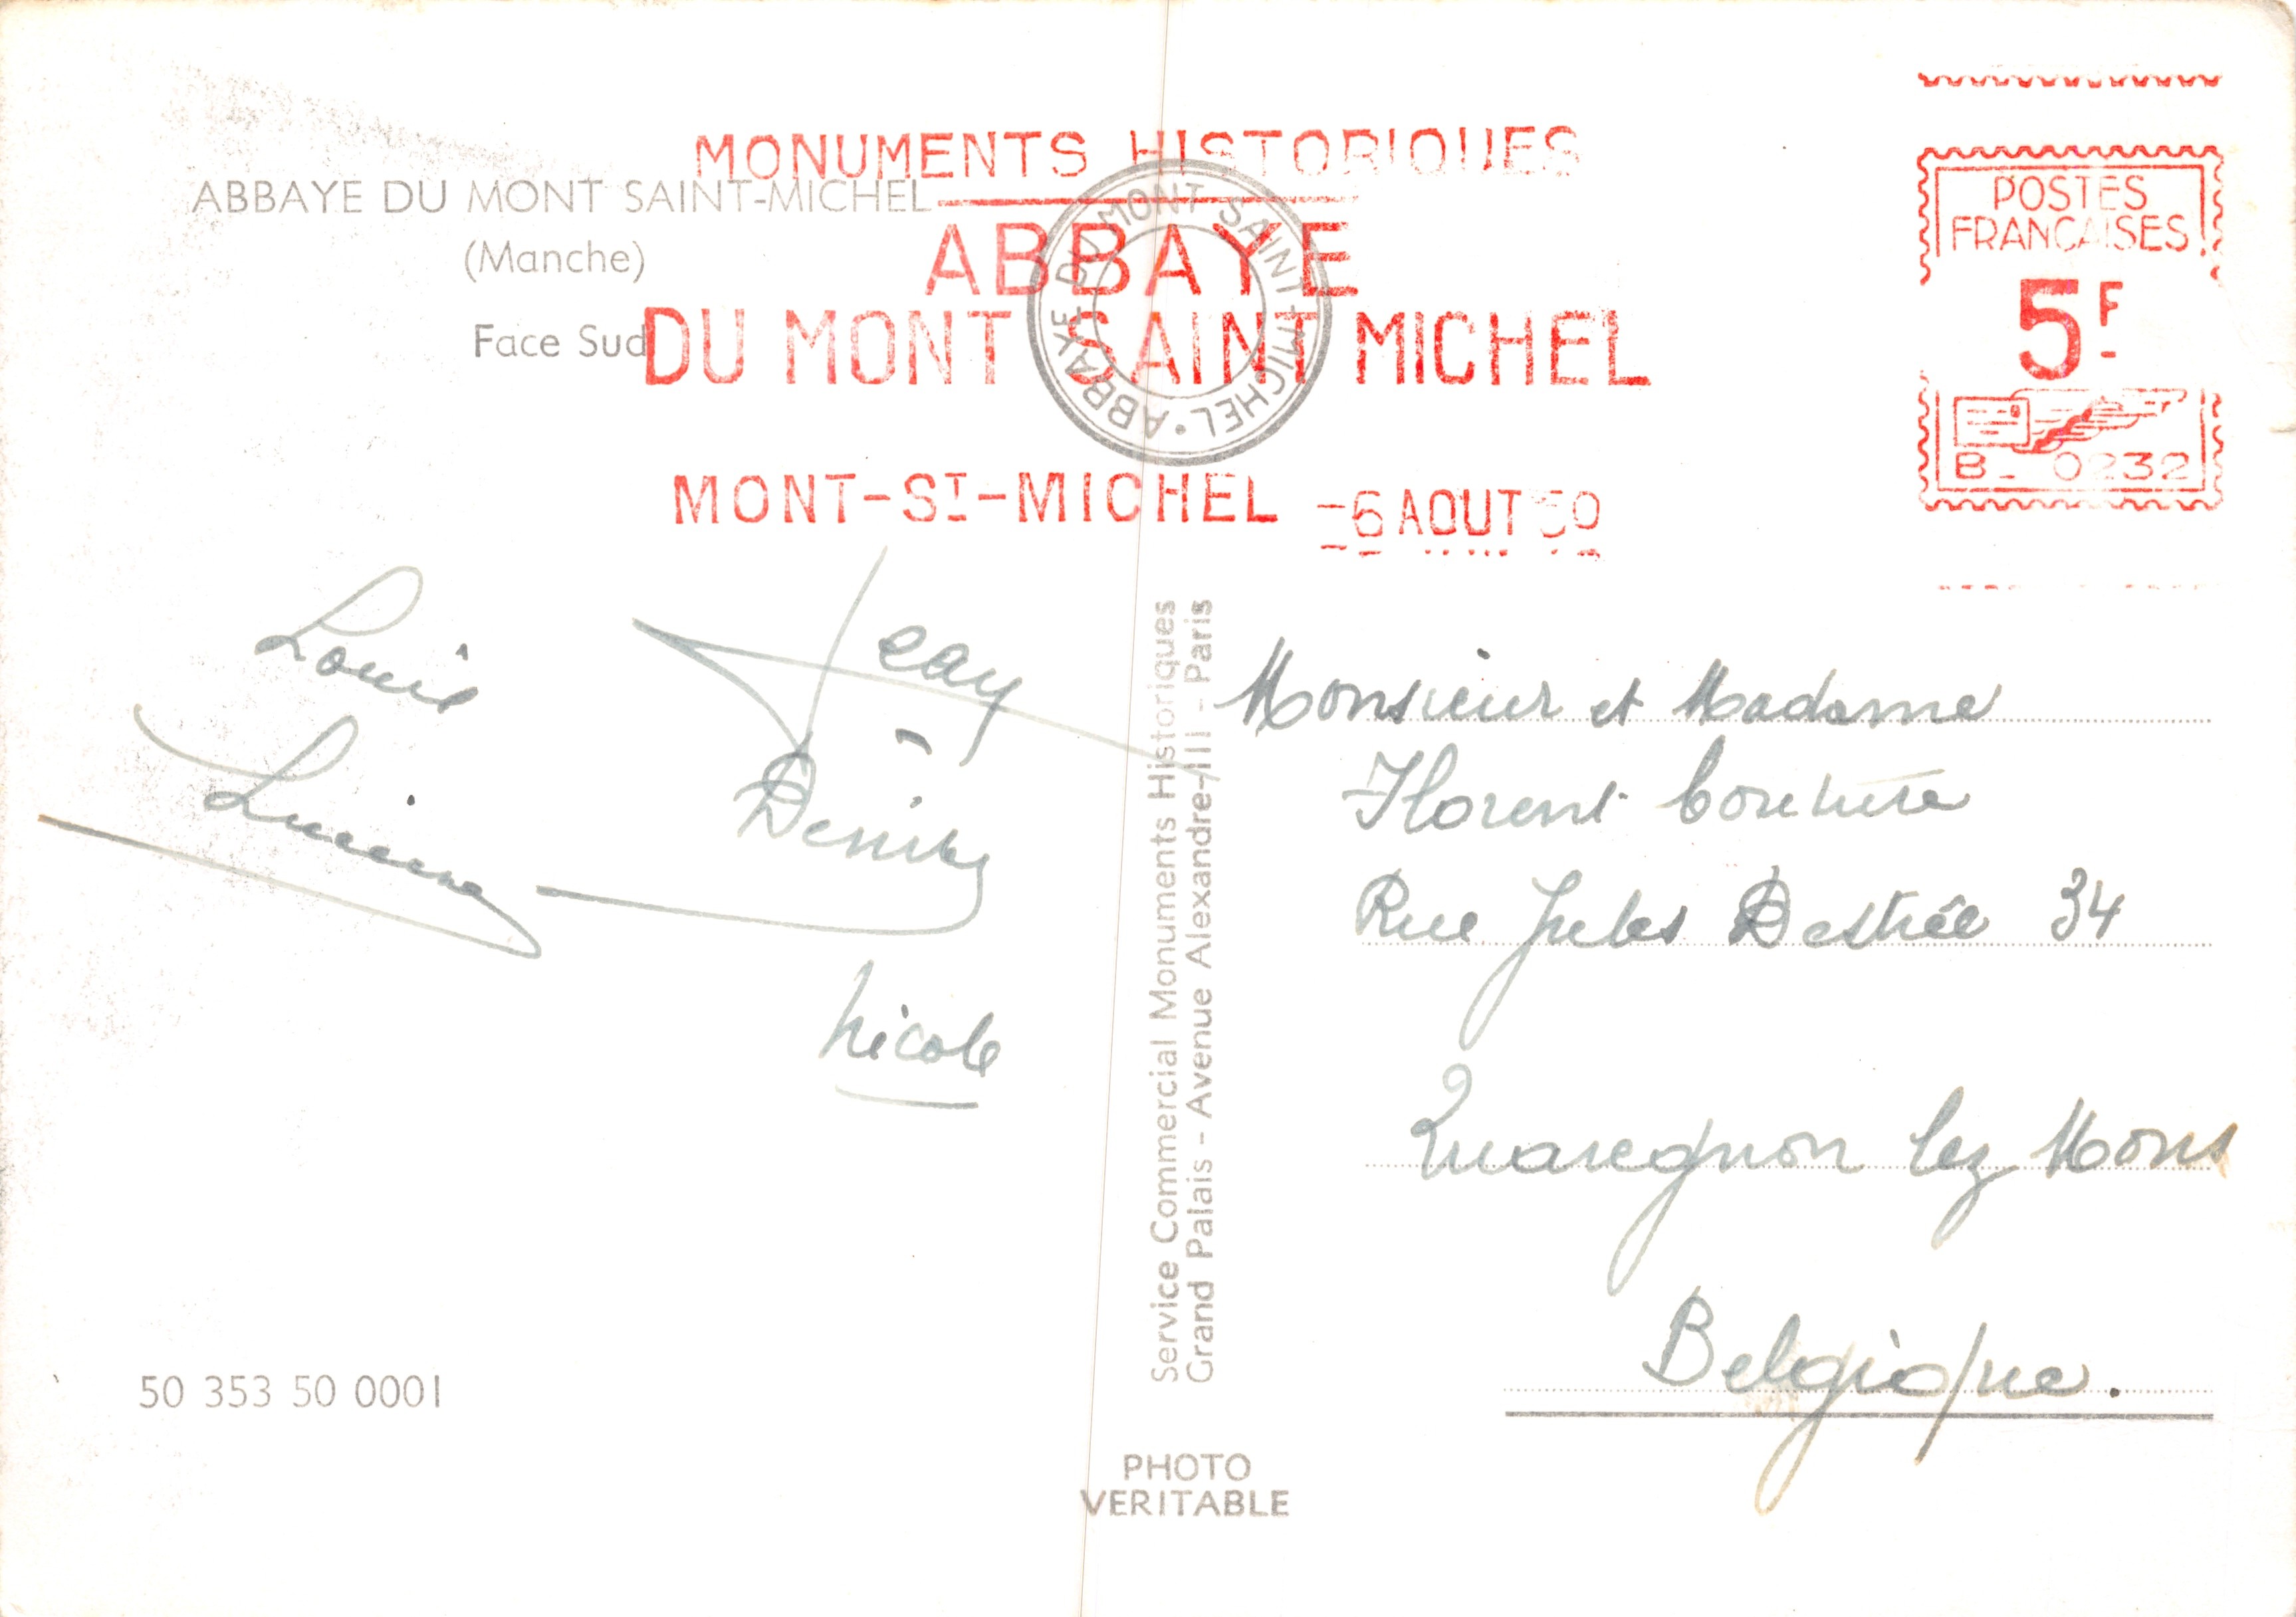 MONUMENTS HISTORIQUES
ABBAYE
DU MONT SAINT MICHEL
MONT-ST-MICHEL -6 AOUT
POSTES
FRANÇAISES
5F
B_ 0232
ABBAYE DU MONT SAINT-MICHEL
(Manche)
Face Sud
ABBAYE DU MONT SAINT-MICHEL
Louis
Jean
Lucienne
Denise
Nicole
Service Commercial Monuments Historiques
Grand Palais - Avenue Alexandre-III - Paris
Monsieur et Madame
Florent
Rue Jules Destrée 34
Quaregnon lez Mons
Belgique.
50 353 50 0001
PHOTO
VERITABLE